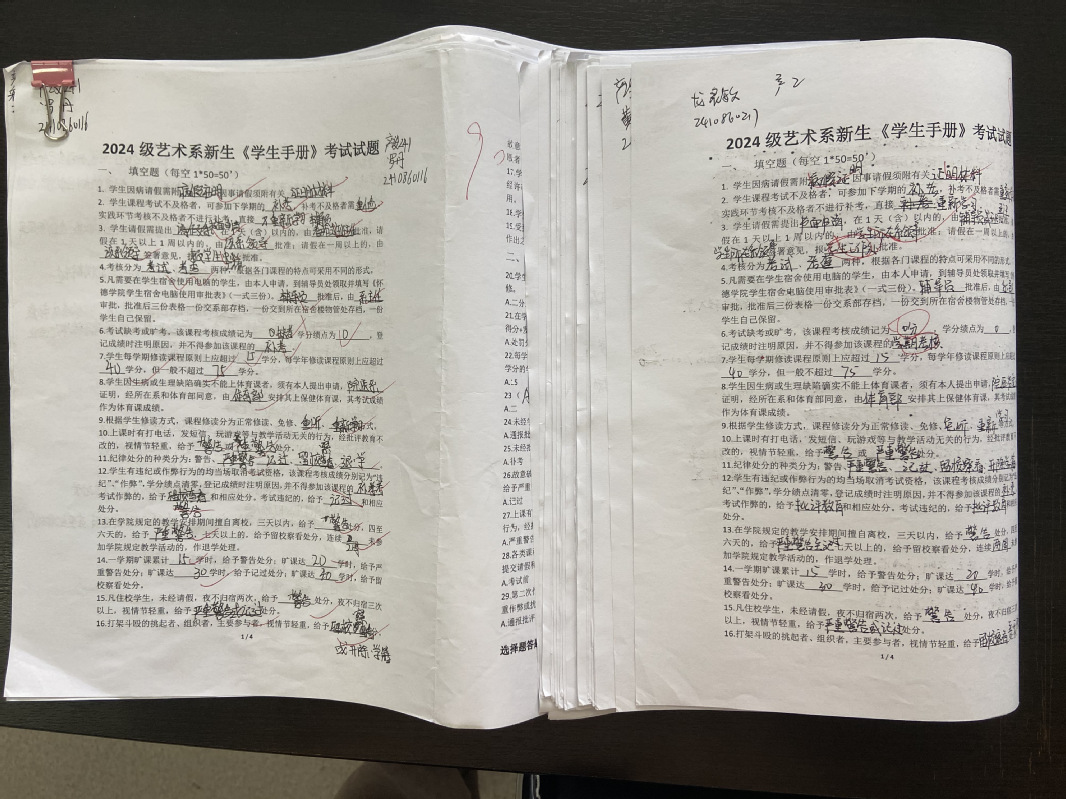 2410860116
产设2411
2410860116
2024 级艺术系新生《学生手册》考试试题
一、 填空题（每空 1*50=50'）
1. 学生因病请假需附病假证明因事请假须附有关证明材料
2. 学生课程考试不及格者，可参加下学期的补考，补考不及格者需重修
实践环节考核不及格者不进行补考，直接
3. 学生请假需提出，在 1 天（含）以内的，由批准，请
假在 1 天以上 1 周以内的，由批准；请假在一周以上的，由
签署意见，报批准。
4.考核分为考试、考查两种，根据各门课程的特点可采用不同的形式，
5.凡需要在学生宿舍使用电脑的学生，由本人申请，到辅导员处领取并填写《怀
德学院学生宿舍电脑使用审批表》（一式三份），辅导员批准后，由系主任
审批，批准后三份表格一份交系部存档，一份交到所在宿舍楼物管处存档，一份
学生自己保留。
6.考试缺考或旷考，该课程考核成绩记为，学分绩点为0，登
记成绩时注明原因，并不得参加该课程的补考
7.学生每学期修读课程原则上应超过15学分，每学年修读课程原则上应超过
40学分，但一般不超过75学分。
8.学生因生病或生理缺陷确实不能上体育课者，须有本人提出申请，
证明，经所在系和体育部同意，由体育部安排其上保健体育课，其考试成绩
作为体育课成绩。
9.根据学生修读方式，课程修读分为正常修读、免修、重听、
10.上课时有打电话，发短信、玩游戏等与教学活动无关的行为，经批评教育不
改的，视情节轻重，给予警告或严重警告处分。
11.纪律处分的种类分为：警告、严重警告、记过、留校察看、退学
12.学生有违纪或作弊行为的均当场取消考试资格，该课程考核成绩分别记为“违
纪”、“作弊”，学分绩点清零，登记成绩时注明原因，并不得参加该课程的补考
考试作弊的，给予留校察看和相应处分。考试违纪的，给予记过和相应
处分。警告
13.在学院规定的教学安排期间擅自离校，三天以内，给予警告处分，四至
六天的，给予严重警告，七天以上的，给予留校察看处分，连续未参
加学院规定教学活动的，作退学处理。
14.一学期旷课累计15学时，给予警告处分；旷课达20学时，给予严
重警告处分；旷课达30学时，给予记过处分；旷课达学时，给予留
校察看处分。
15.凡住校学生，未经请假，夜不归宿两次，给予警告处分，夜不归宿三次
以上，视情节轻重，给予严重警告或记过处分。
16.打架斗殴的挑起者、组织者，主要参与者，视情节轻重，给予留校察看
1/4
或开除学籍
17.学
二、
20.学生
修。
A.二分
21.在学
A.处罚
22.每学
A..5
A.二
24.未经
A.通报批
25.未经批
A.补考
26.故意破
给予严重
A.记过
27.上课有
行为，经
A.严重警告
28.各类请
提交请假
A.考试前
29.第二次
重作弊或找
A.通报批评
选择题答
2410860217
2024 级艺术系新生《学生手册》考试试题
一、 填空题（每空 1*50=50'）
1. 学生因病请假需附病假证明因事请假须附有关证明材料
2. 学生课程考试不及格者，可参加下学期的补考，补考不及格者需
实践环节考核不及格者不进行补考，直接重新学习
3. 学生请假需提出书面申请，在 1 天（含）以内的，由辅导员
假在 1 天以上 1 周以内的，由批准；请假在一周以上的，由
签署意见，报学生工作处批准。
4.考核分为考试、考查两种，根据各门课程的特点可采用不同的形式，
5.凡需要在学生宿舍使用电脑的学生，由本人申请，到辅导员处领取并填写《怀
德学院学生宿舍电脑使用审批表》（一式三份），辅导员批准后，由
审批，批准后三份表格一份交系部存档，一份交到所在宿舍楼物管处存档，一份
学生自己保留。
6.考试缺考或旷考，该课程考核成绩记为0分，学分绩点为0，登
记成绩时注明原因，并不得参加该课程的学期考核
7.学生每学期修读课程原则上应超过15学分，每学年修读课程原则上应超过
40学分，但一般不超过75学分。
8.学生因生病或生理缺陷确实不能上体育课者，须有本人提出申请，
证明，经所在系和体育部同意，由体育部安排其上保健体育课，其考试成绩
作为体育课成绩。
9.根据学生修读方式，课程修读分为正常修读、免修、重听、重新
10.上课时有打电话，发短信、玩游戏等与教学活动无关的行为，经批评教育
改的，视情节轻重，给予警告或严重警告处分。
11.纪律处分的种类分为：警告、严重警告、记过、留校察看、开除学籍
12.学生有违纪或作弊行为的均当场取消考试资格，该课程考核成绩分别记为“违
纪”、“作弊”，学分绩点清零，登记成绩时注明原因，并不得参加该课程的
考试作弊的，给予批评教育和相应处分。考试违纪的，给予批评教育
处分。
13.在学院规定的教学安排期间擅自离校，三天以内，给予警告处分，四
六天的，给予严重警告或记过七天以上的，给予留校察看处分，连续两周
加学院规定教学活动的，作退学处理。
14.一学期旷课累计15学时，给予警告处分；旷课达20学时，给予
重警告处分；旷课达30学时，给予记过处分；旷课达40学时，给予
校察看处分。
15.凡住校学生，未经请假，夜不归宿两次，给予警告处分，夜不归宿三
以上，视情节轻重，给予严重警告或记过处分。
16.打架斗殴的挑起者、组织者，主要参与者，视情节轻重，给予留校察看
1/4